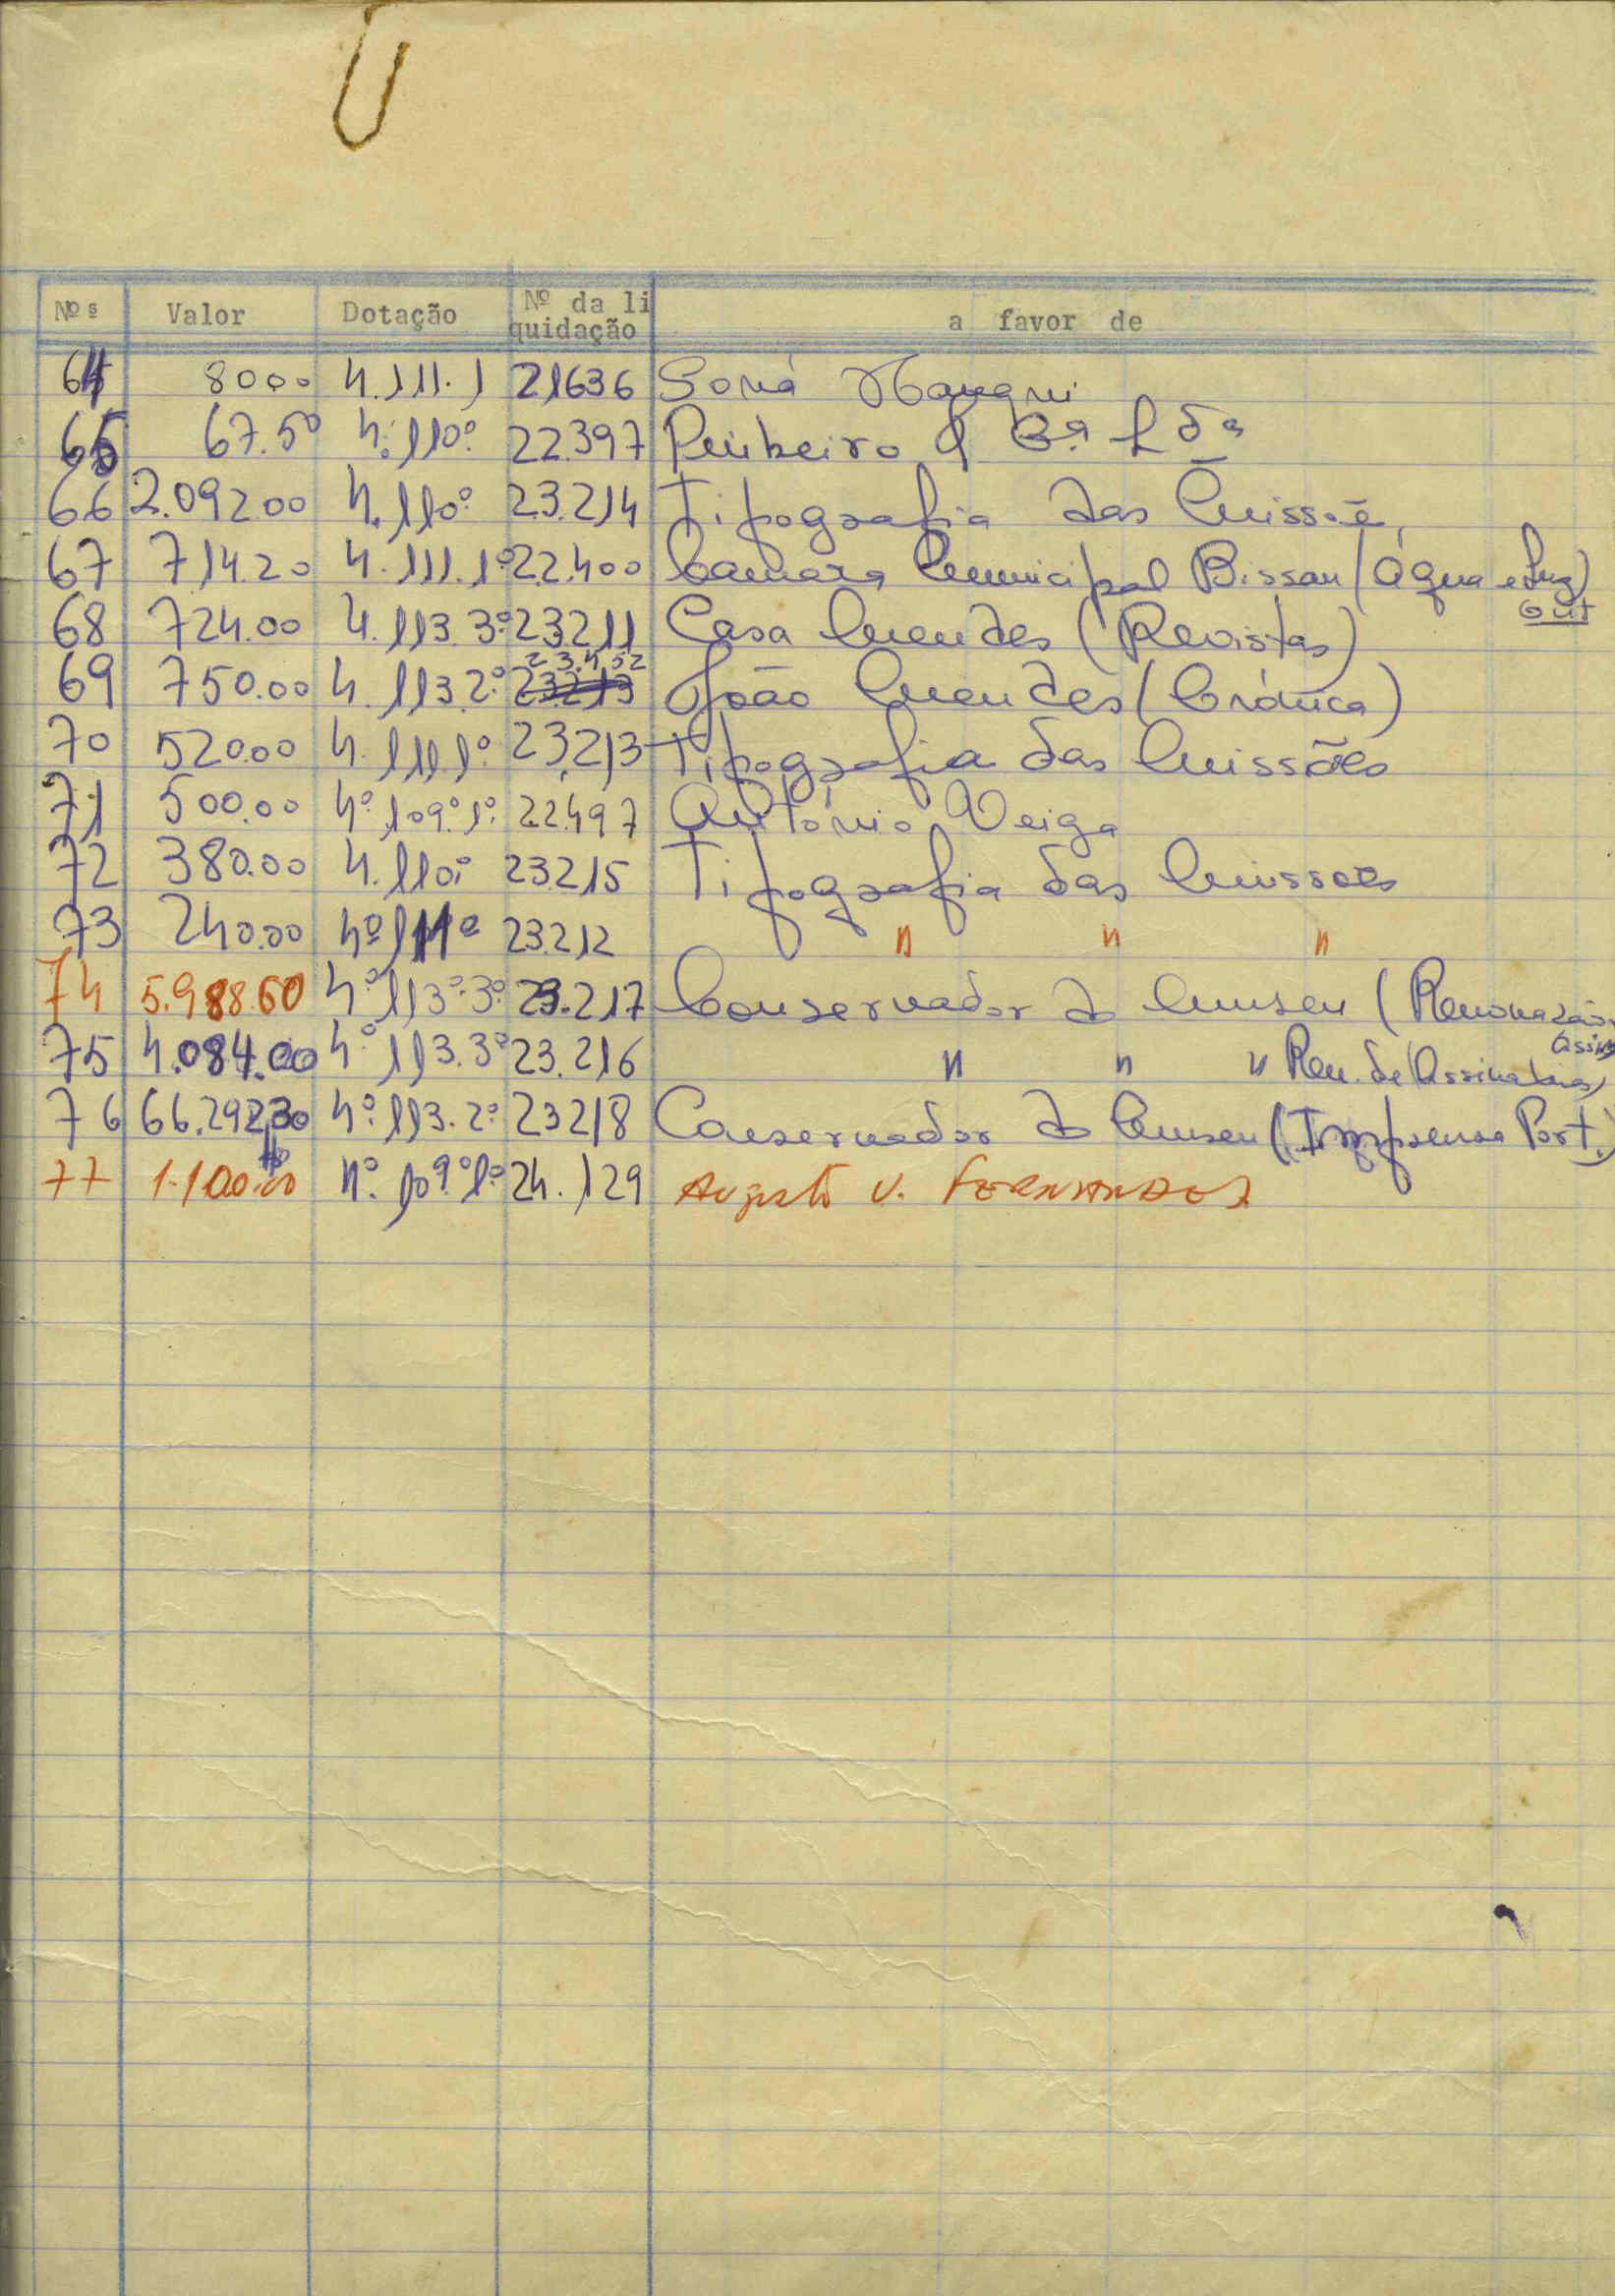 Nºs Valor Dotação Nº da li a favor de
quidação
64 80.00 4.111.1 21636 Soná
65 67.50 4.º110º 22.397 Pinheiro & Cª Ldª
66 2.092.00 4.110º 23.214 Tipografia das Missõe
67 714.20 4.111.1º 22.400 Camara Municipal Bissau (Água e Luz)
out
68 724.00 4.113.3º 23211 Casa Mendes (Revistas)
23.452
69 750.00 4.113.2º 23213 João Mendes (Crónica)
70 520.00 4.111.1º 23,213 Tipografia das Missões
71 500.00 4º.109º.1º 22.497 António Veiga
72 380.00 4.110º 23215 Tipografia das Missoes
73 240.00 4º 111º 23.212 " " "
74 5.988.60 4º.113º.3º 23.217 Conservador do Museu (Renovação
assin
75 4.084.00 4º 113.3º 23.216 " " " Ren. de Assinaturas)
76 66.292,30 4º.113.2º 23218 Conservador do Museu (Imprensa Port.)
77 1.100.00 4º.109º.1º 24.129 Augusto V. FERNANDES